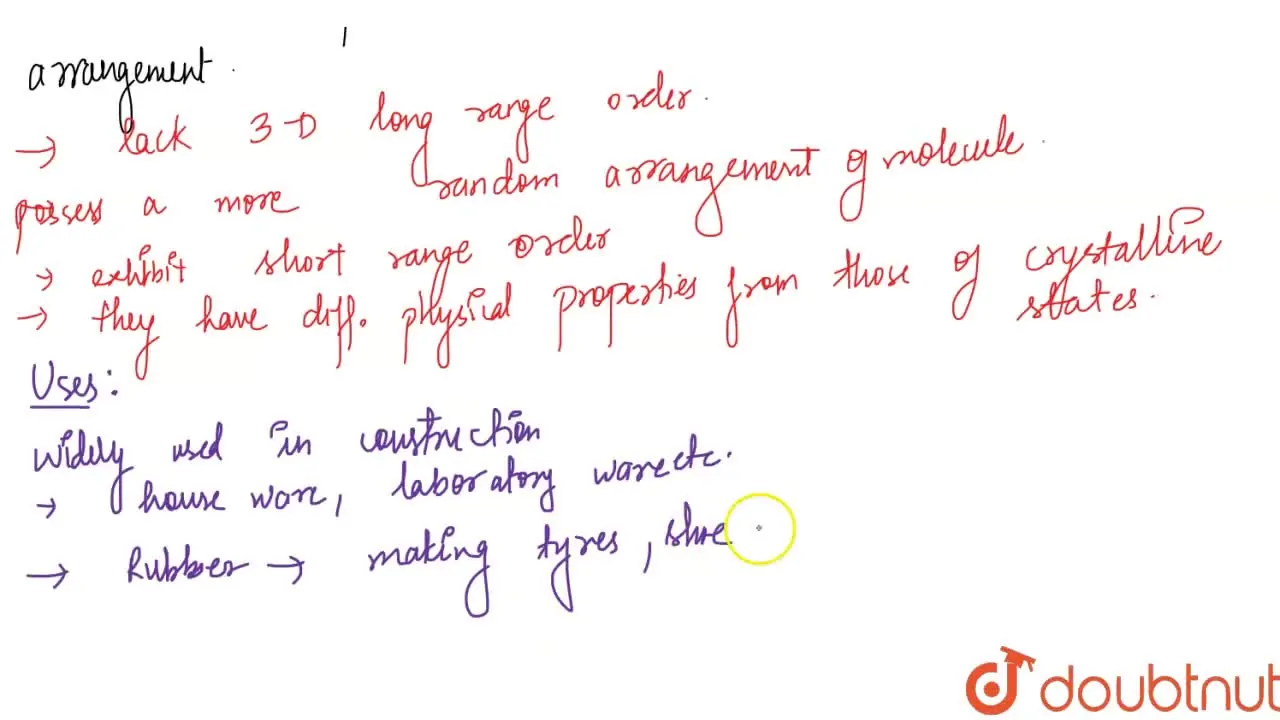 arrangement.
→ lack 3-D long range order.
possess a more random arrangement of molecule.
→ exhibit short range order
→ they have diff. physical properties from those of crystalline
states.
Uses:
Widely used in construction
→ house ware, laboratory ware etc.
→ Rubber → making tyres, shoe
doubtnut